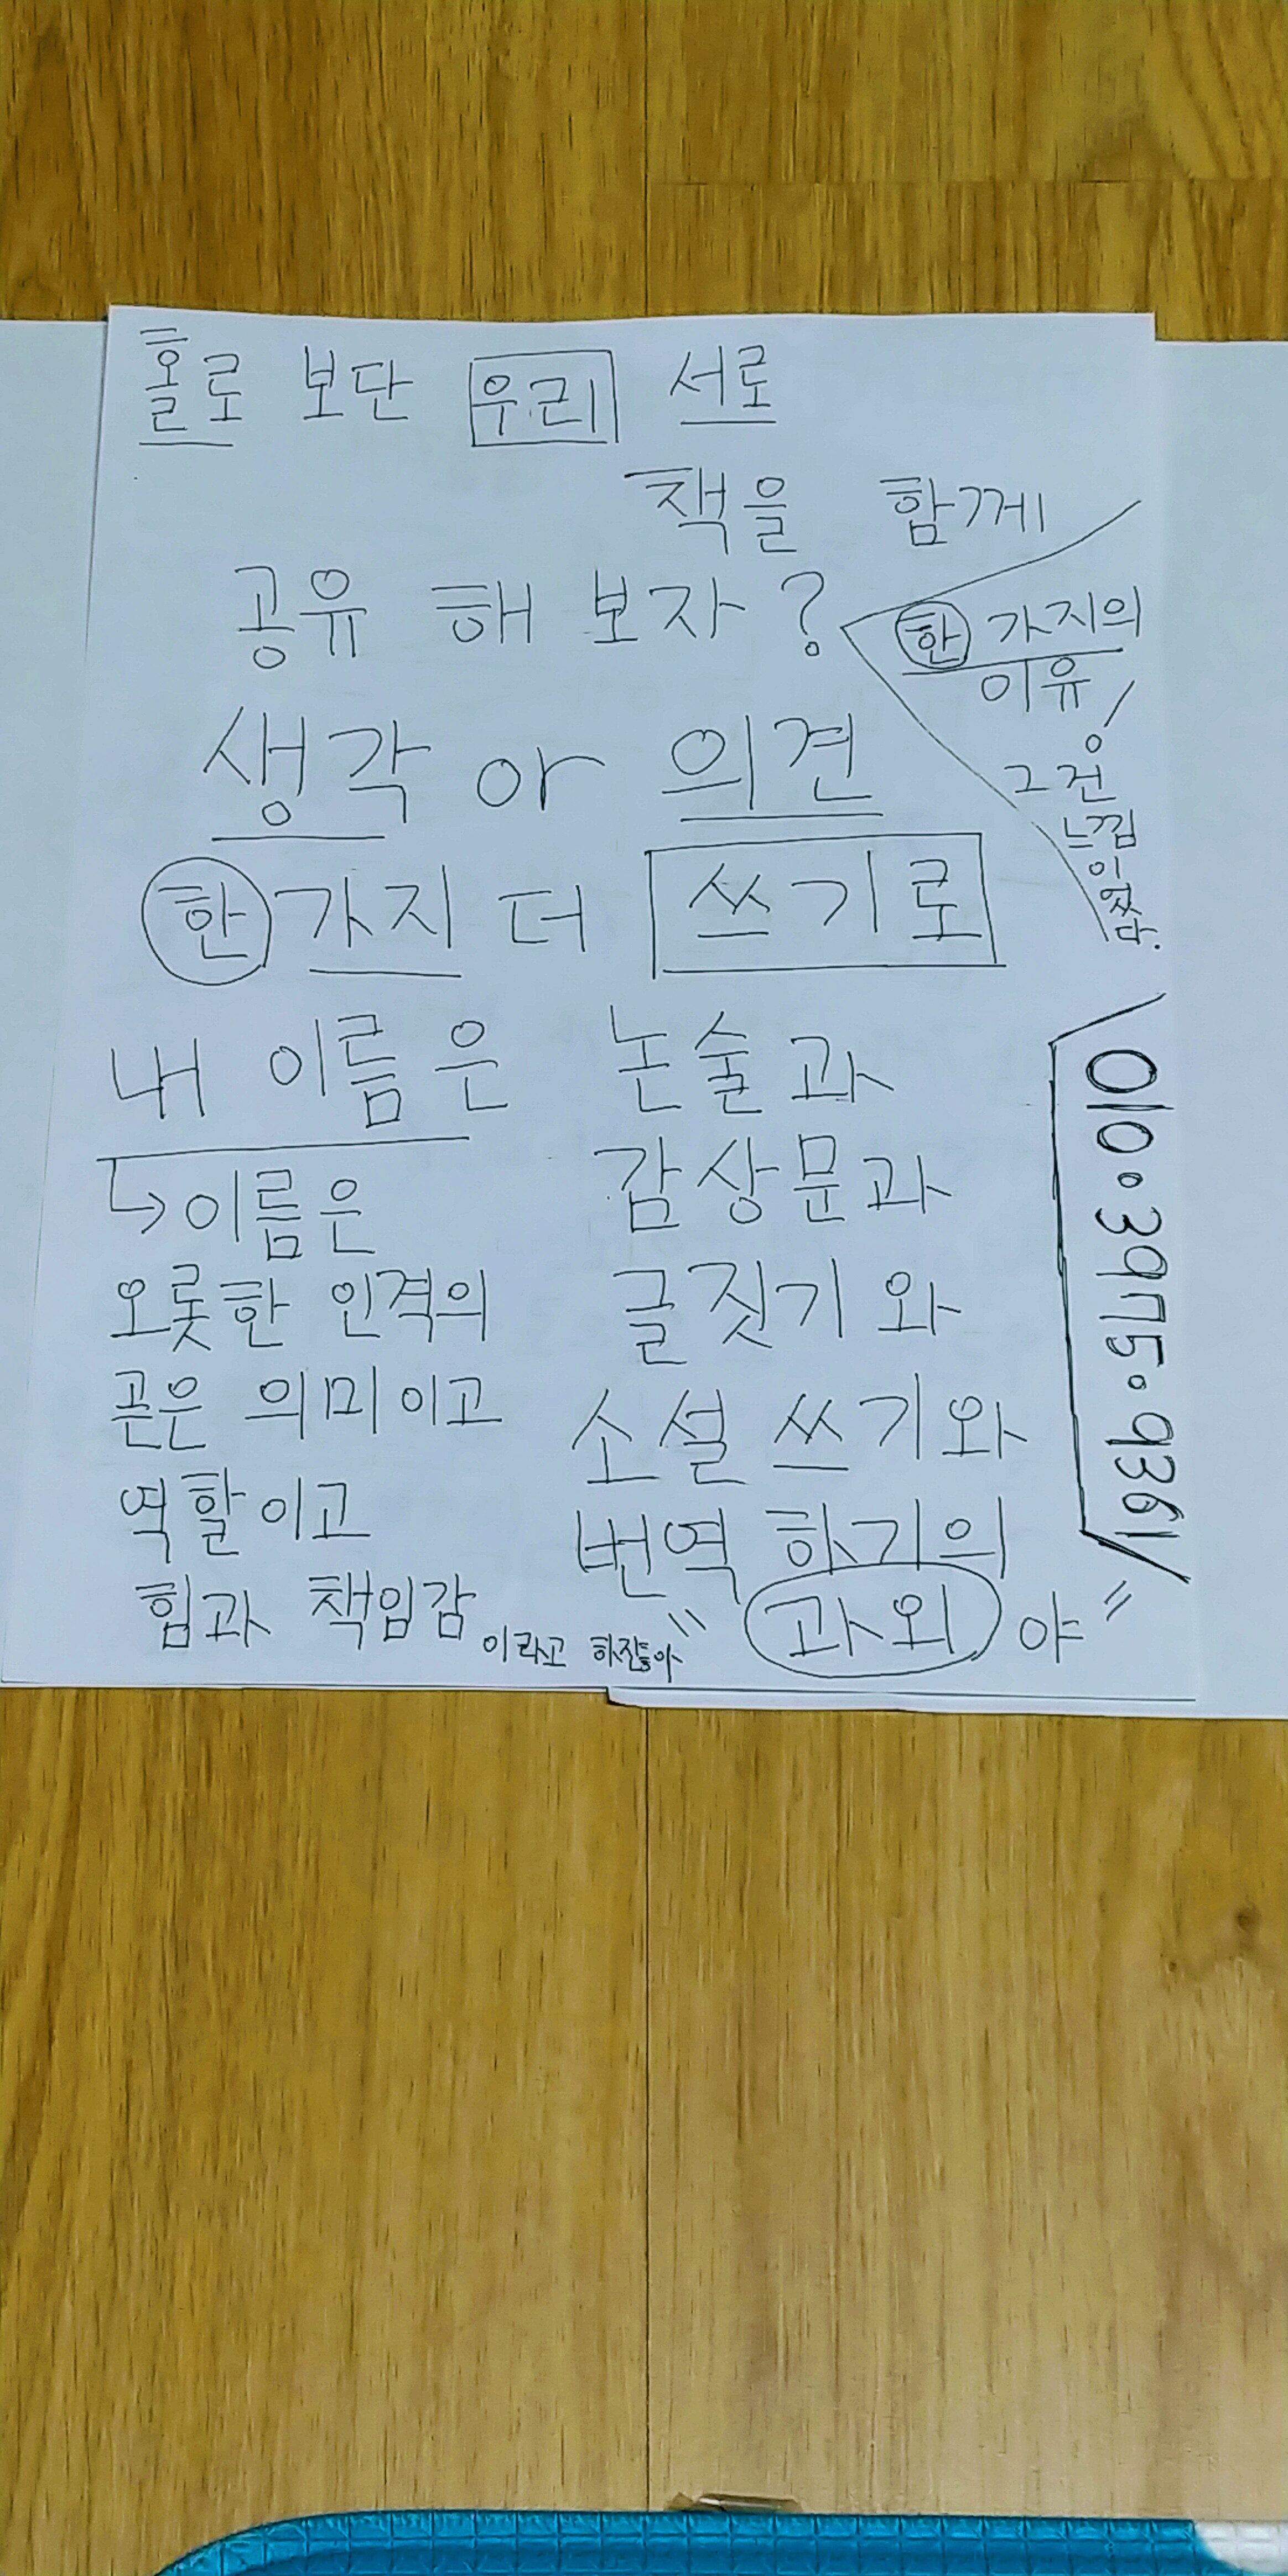 홀로 보단 우리 서로
책을 함께
공유 해 보자?
한 가지의
이유!
그건
느낌
이었
다.
생각 or 의견
한 가지 더 쓰기로
내 이름은
↳이름은
오롯한 인격의
곧은 의미이고
역할이고
힘과 책임감이라고 하잖아
논술과
감상문과
글짓기와
소설 쓰기와
번역 하기의
"과외야"
010·3975·9361